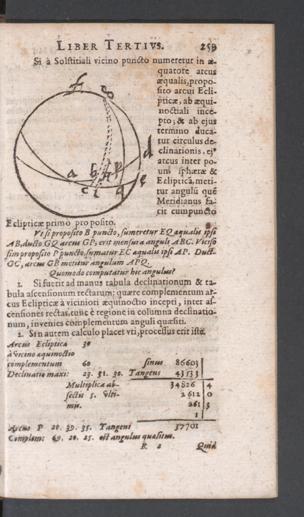 LIBER TERTIVS. 259
Si à Solstitiali vicino puncto numeretur in æ-
quatore arcus
æqualis, propo-
sito arcui Ecli-
pticæ, ab æqui-
noctiali ince-
pto; & ab ejus
termino duca-
tur circulus de-
clinationis, ej'
arcus inter po-
lum sphæræ &
Eclipticã, meti-
tur angulũ quẽ
Meridianus fa-
cit cum puncto
f
a
b
p
d
c
i
q
e
Eclipticæ primo proposito.
Vt si proposito B puncto, sumeretur EQ æqualis ipsi
AB, ducto GQ arcus GP, erit mensura anguli ABC. Vicissi
sim proposito P puncto, sumatur EC æqualis ipsi AP. Duct.
GC, arcus GB metitur angulum APQ.
Quomodo computatur hic angulus?
1. Si fuerit ad manus tabula declinationum & ta-
bula ascensionum rectarum; quære complementum ar-
cus Eclipticæ à viciniori æquinoctio incepti, inter as-
censiones rectas, tunc è regione in columna declinatio-
num, invenies complementum anguli quæsiti.
2. Sin autem calculo placet uti, processus erit iste.
Arcus Ecliptica 30
à vicino æquinoctio
complementum 60 sinus 86603
Declinatio maxi: 23. 31. 30. Tangens 43533
Multiplica ab- 34826 4
sectis 5. ulti- 2612 0
mis. 261 3
1
Arcus P 20. 39. 35. Tangens 37701
Complem: 69. 20. 25. est angulus quæsitus.
R 2 Quid